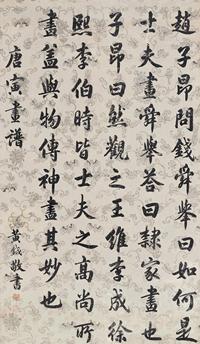 趙子昂問錢舜舉曰如何是
士夫畫舜舉荅曰隸家畫也
子昂曰然觀之王維李成徐
熙李伯時皆士夫之高尚所
畫葢與物傳神盡其妙也
唐寅畫譜
黃鉞敬書